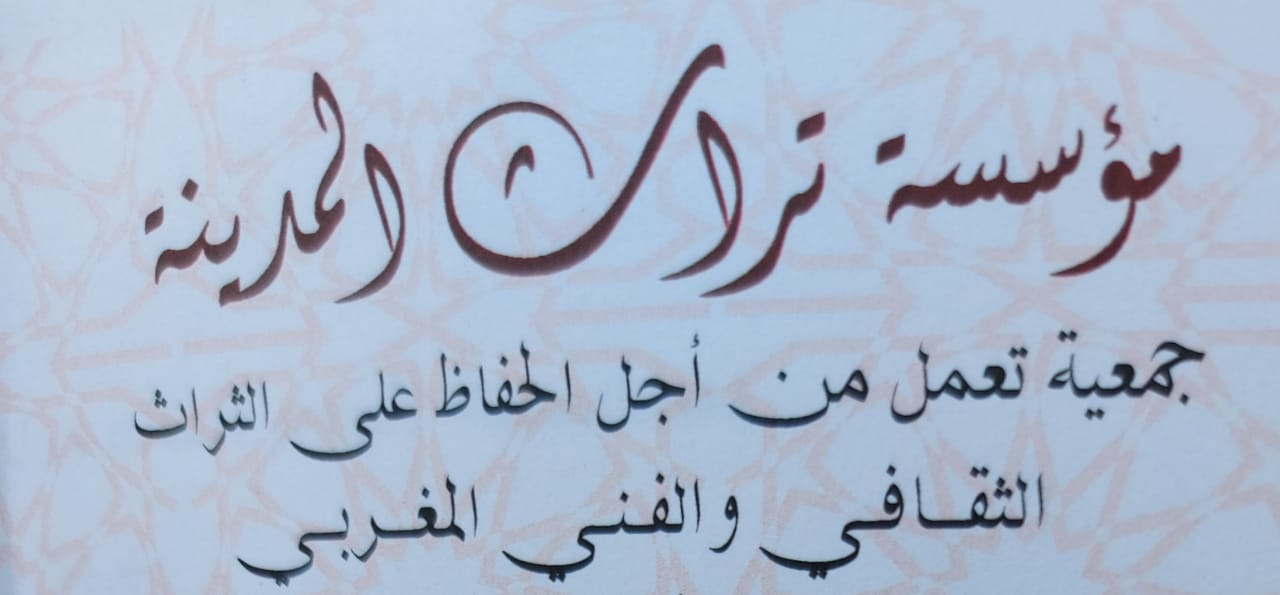 مؤسسة تراث المدينة
جمعية تعمل من أجل الحفاظ على التراث
الثقافي والفني المغربي